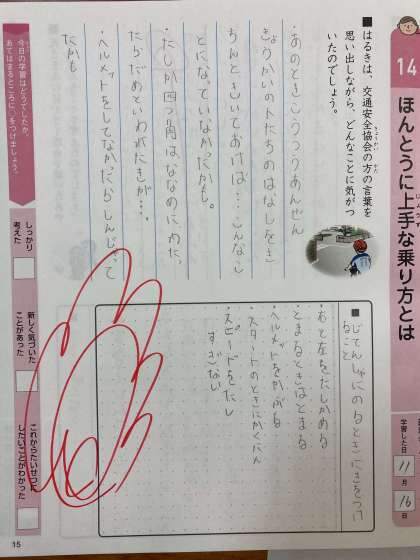 14
ほんとうに上手な乗り方とは
じょうず
■はるきは、交通安全協会の方の言葉を
きょうかい
かた
思い出しながら、どんなことに気がつ
いたのでしょう。
・あのときこうつうあんぜん
きょうかいの人たちのはなしをき
ちんときいておけば・・・こんなこ
とになっていなかったかも。
・たしか四つ角は、ななめにわた
たらだめといわれたきが・・・。
・ヘルメットをしてなかったらしんじゃって
たかも
■じてんしゃにのるときに気をつけ
ること
・右左をたしかめる
・とまるときはとまる
・ヘルメットをかぶる
・スタートのときにかくにん
・スピードをだし
すぎない
学習した日
11
月
16
日
今日の学習はどうでしたか。
あてはまるところに○をつけましょう。
しっかり
考えた
新しく気づいた
ことがあった
これからたいせつに
したいことがわかった
15